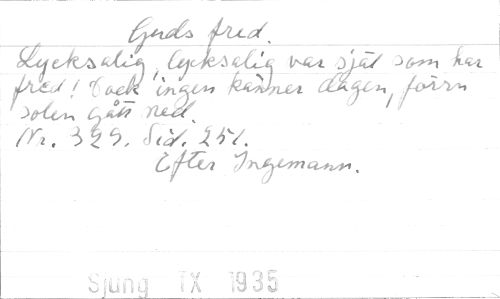 Guds fred.
Lycksalig, lycksalig var själ som har
fred! Dock ingen känner dagen, förrn
solen gått ned.
Nr. 329. Sid. 251.
Efter Ingemann.
Sjung IX 1935